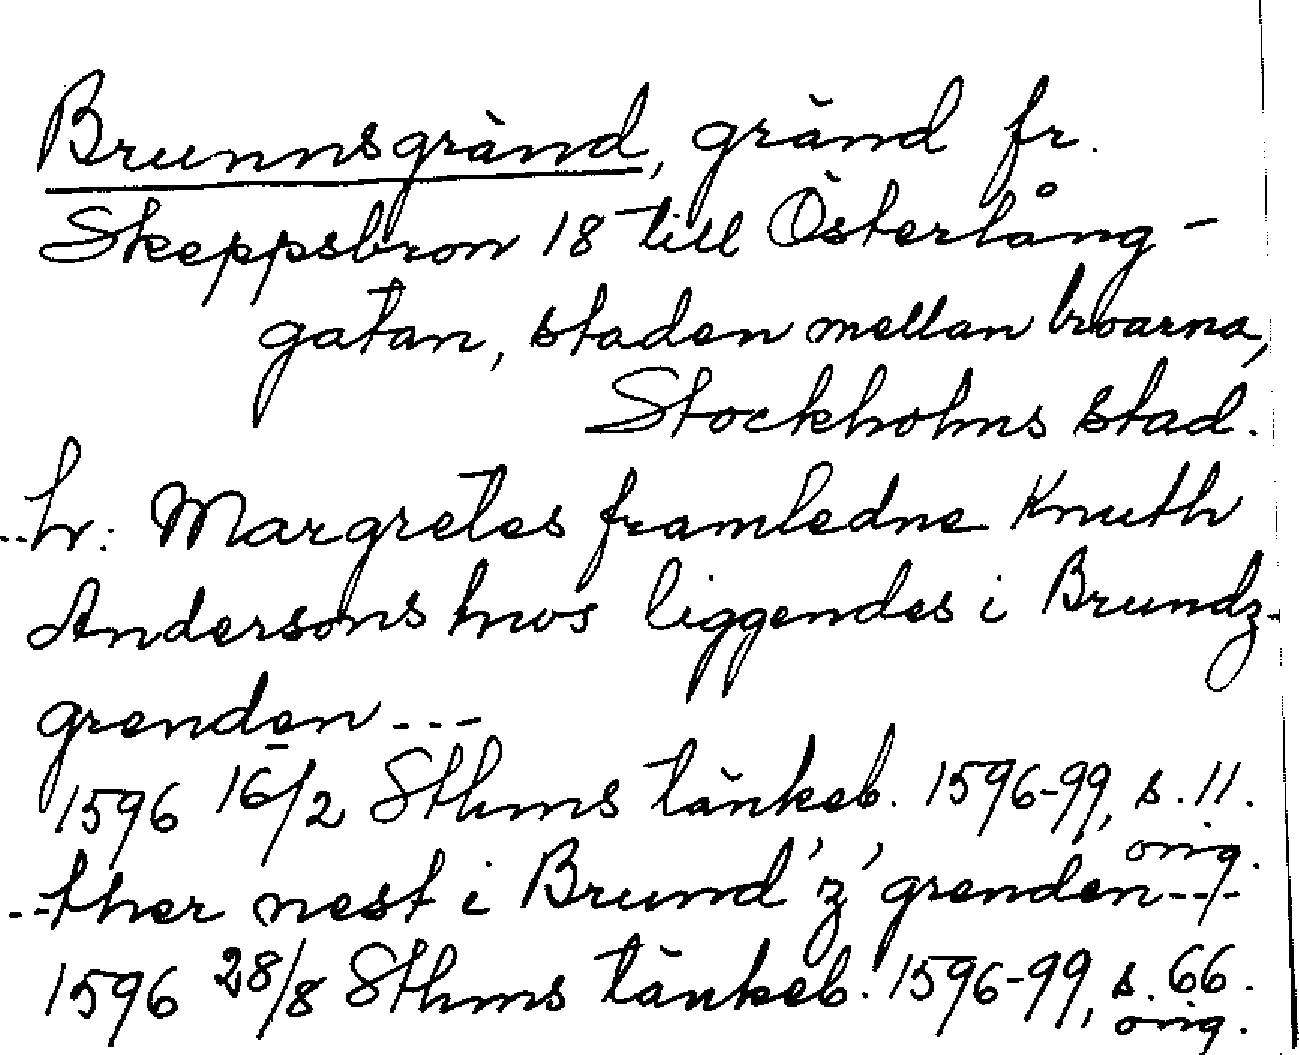 Brunnsgränd, gränd fr.
Skeppsbron 18 till Österlång-
gatan, staden mellan broarna,
Stockholms stad.
--hr: Margretes framledne Knuth
Andersons hws liggendes i Brundz-
grenden ---
1596 16/2 Sthms tänkeb. 1596-99, s. 11.
orig.
--ther nest i Brund'z'grenden---
1596 28/8 Sthms tänkeb. 1596-99, s. 66.
orig.